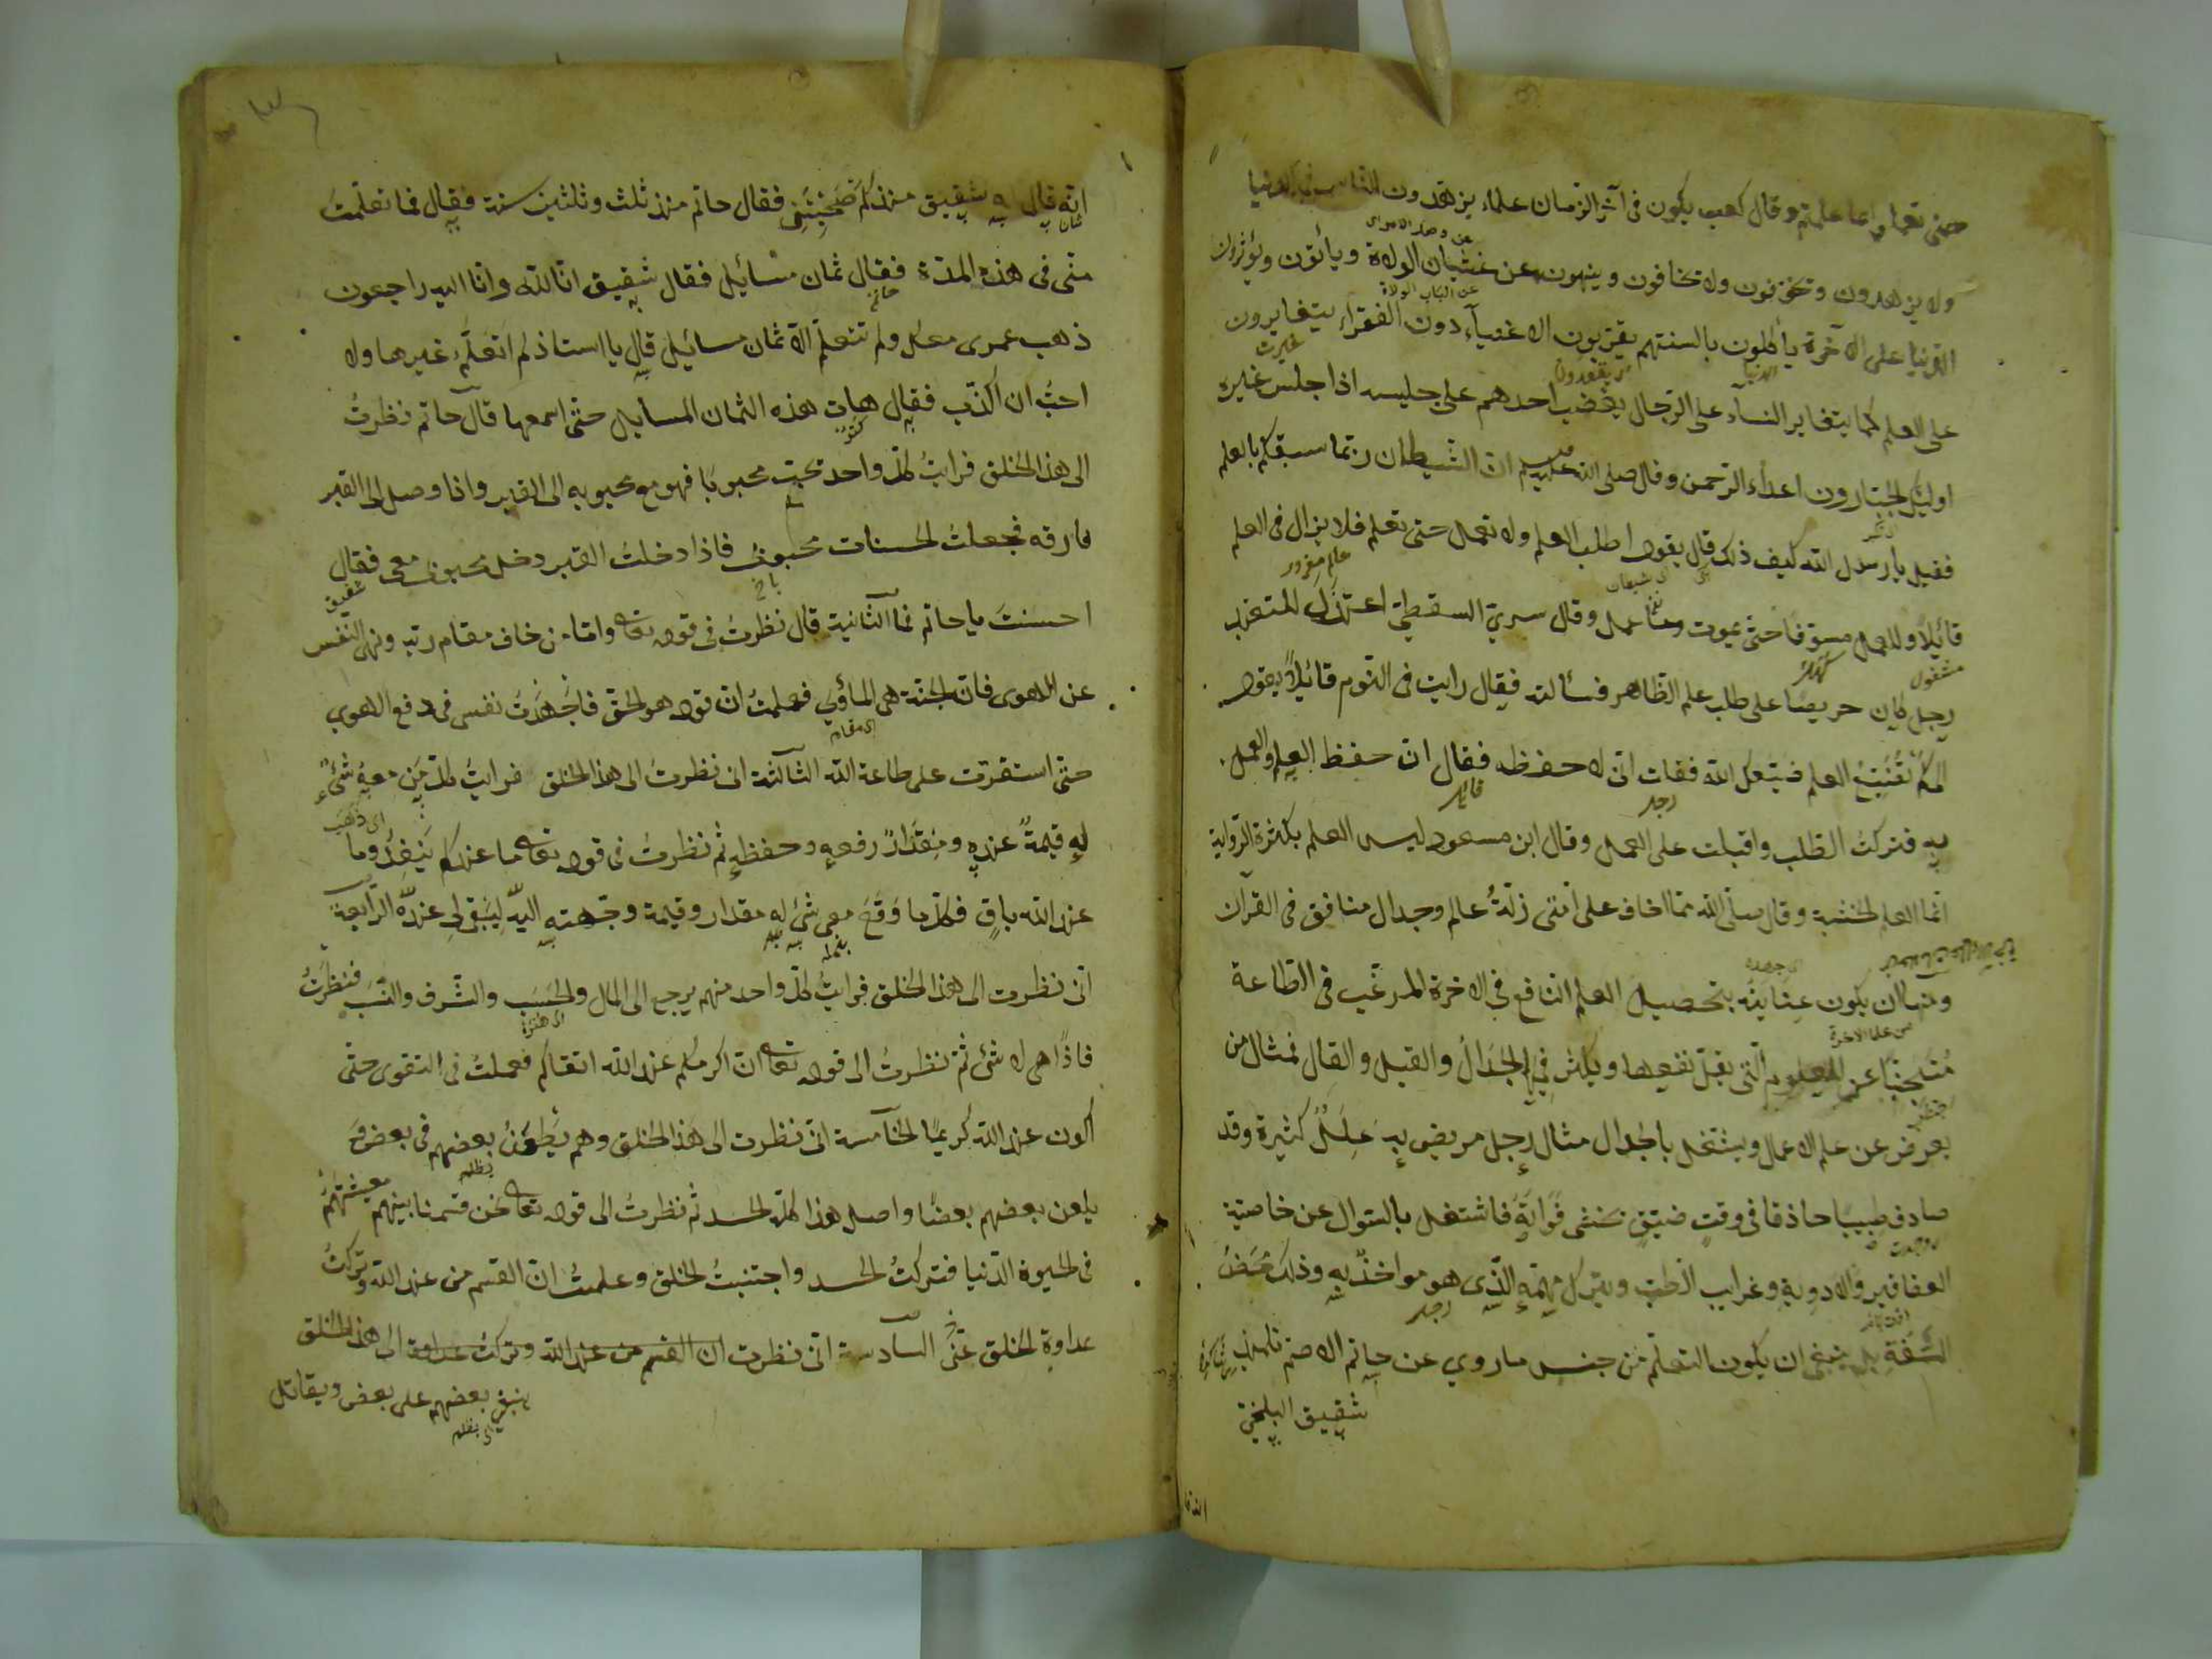 حتى تعملوا بما علمتم وقال كعب يكون في آخر الزمان علماء يزهدون الناس في الدنيا
ولا يزهدون ويخوفون ولا يخافون وينهون عن غشيان الولاة ويأتون ويؤثرون
الدنيا على الآخرة يأكلون بالسنتهم يقربون الاغنياء دون الفقراء يتغايرون
على العلم كما يتغاير النساء على الرجال يغضب احدهم على جليسه اذا جلس غيره
اولئك الجبارون اعداء الرحمن وقال صلى الله عليه وسلم ان الشيطان ربما سبقكم بالعلم
فقيل يا رسول الله كيف ذلك قال يقول اطلب العلم ولا تعمل حتى تعلم فلا يزال في العلم
قائلا وللعمل مسوفا حتى يموت وما عمل وقال سري السقطي اعتزل للتعبد
رجل كان حريصا على طلب علم الظاهر فسألته فقال رايت في النوم قائلا يقول
الى كم تضيع العلم ضيعك الله فقلت انى لاحفظه فقال ان حفظ العلم العمل
به فتركت الطلب واقبلت على العمل وقال ابن مسعود ليس العلم بكثرة الرواية
انما العلم الخشية وقال صلى الله مما اخاف على امتى زلة عالم وجدال منافق في القرآن
ومنها ان يكون عنايته بتحصيل العلم النافع في الاخرة المرغب في الطاعة
مجتنبا عن العلوم التى يقل نفعها ويكثر فيها الجدال والقيل والقال فمثال من
يعرض عن علم الاعمال ويشتغل بالجدال مثال رجل مريض به علل كثيرة وقد
صادف طبيبا حاذقا في وقت ضيق يخشى فواته فاشتغل بالسوال عن خاصية
العقاقير والادوية وغرايب الطب وترك مهمه الذي هو مواخذ به وذلك محض
السفه بل ينبغى ان يكون التعلم من جنس ما روي عن حاتم الاصم تلميذ
شقيق البلخي
انه قال له شقيق منذ كم صحبتنى فقال حاتم منذ ثلث وثلثين سنة فقال فما تعلمت
منى في هذه المدة فقال ثمان مسائيل فقال شقيق انا لله وانا اليه راجعون
ذهب عمرى معك ولم تتعلم الا ثمان مسائيل قال يا استاذ لم اتعلم غيرها ولا
احب ان اكذب فقال هات هذه الثمان المسايل حتى اسمعها قال حاتم نظرت
الى هذا الخلق فرايت كل واحد يحب محبوبا فهو مع محبوبه الى القبر واذا وصل الى القبر
فارقه فجعلت الحسنات محبوبى فاذا دخلت القبر دخل محبوبى معى فقال
احسنت يا حاتم فما الثانية قال نظرت في قوله تعالى واما من خاف مقام ربه ونهى النفس
عن الهوى فان الجنة هى المأوي فعلمت ان قوله هو الحق فاجهدت نفسى في دفع الهوي
حتى استقرت على طاعة الله الثالثة انى نظرت الى هذا الخلق فرايت كل من معه شئ
له قيمة عنده ومقدار رفعه وحفظه ثم نظرت في قوله تعالى ما عندكم ينفد وما
عند الله باق فكلما وقع معى شئ له مقدار وقيمة وجهته اليه ليبقى لى عنده الرابعة
انى نظرت الى هذا الخلق فرايت كل واحد منهم يرجع الى المال والحسب والشرف والنسب فنظرت
فاذا هى لا شئ ثم نظرت الى قوله تعالى ان اكرمكم عند الله اتقاكم فعملت في التقوى حتى
اكون عند الله كريما الخامسة انى نظرت الى هذا الخلق وهم يطعن بعضهم في بعض و
يلعن بعضهم بعضا واصل هذا كله الحسد ثم نظرت الى قوله تعالى نحن قسمنا بينهم معيشتهم
في الحيوة الدنيا فتركت الحسد واجتنبت الخلق وعلمت ان القسم من عند الله وتركت
عداوة الخلق عنى السادسة انى نظرت ان القسم من عند الله وتركت عداوة الى هذا الخلق
يبغى بعضهم على بعض ويقاتل